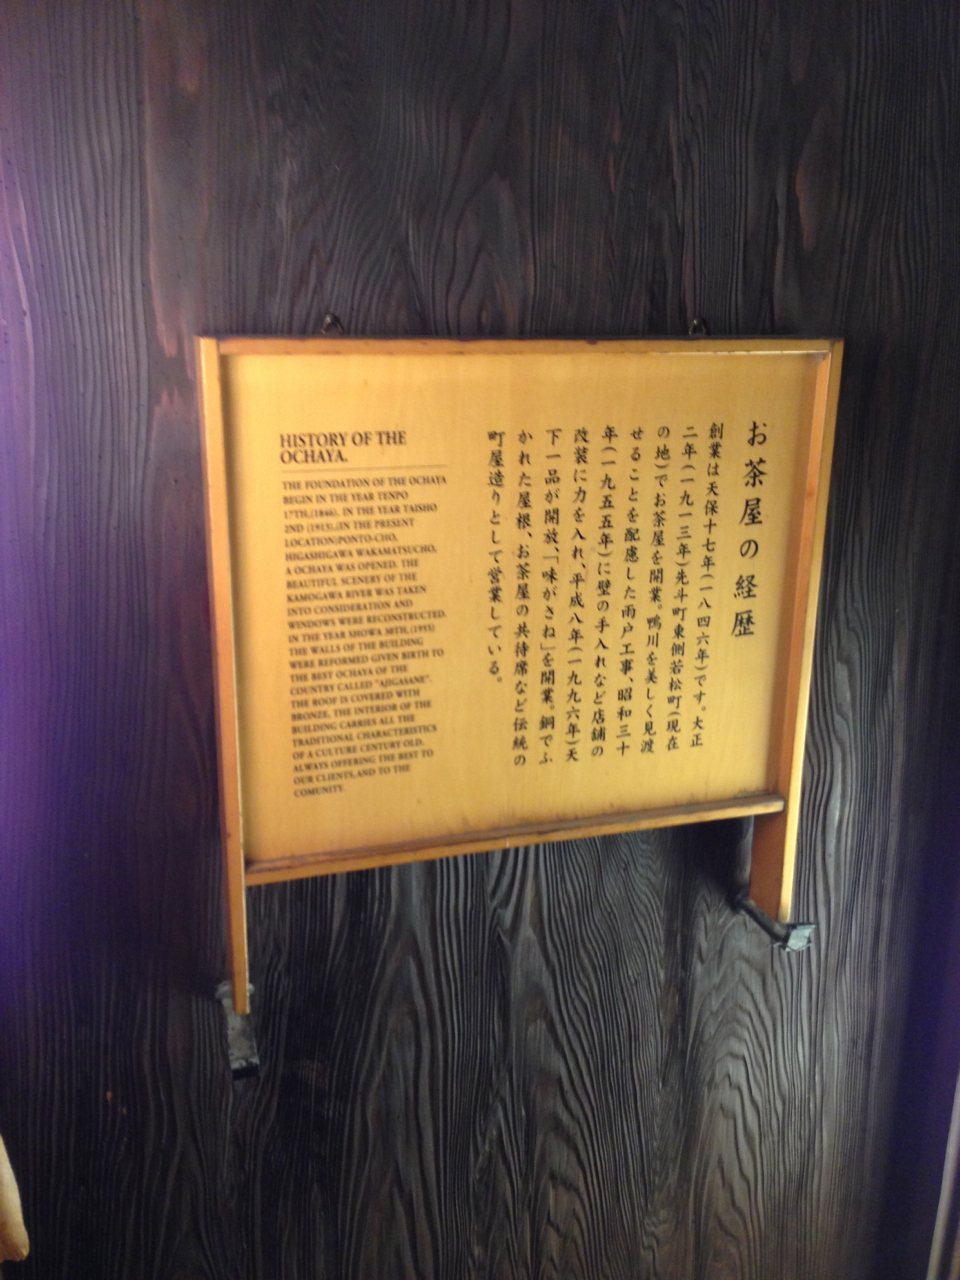 お茶屋の経歴
創業は天保十七年(一八四六年)です。大正
二年(一九一三年)先斗町東側若松町(現在
の地)でお茶屋を開業。鴨川を美しく見渡
せることを配慮した雨戸工事、昭和三十
年(一九五五年)に壁の手入れなど店舗の
改装に力を入れ、平成八年(一九九六年)天
下一品が開放、「味がさね」を開業。銅でふ
かれた屋根、お茶屋の共待席など伝統の
町屋造りとして営業している。
HISTORY OF THE
OCHAYA.
THE FOUNDATION OF THE OCHAYA
BEGIN IN THE YEAR TENPO
17TH,(1846). IN THE YEAR TAISHO
2ND (1913),(IN THE PRESENT
LOCATION)PONTO-CHO,
HIGASHIGAWA WAKAMATSUCHO,
A OCHAYA WAS OPENED. THE
BEAUTIFUL SCENERY OF THE
KAMOGAWA RIVER WAS TAKEN
INTO CONSIDERATION AND
WINDOWS WERE RECONSTRUCTED.
IN THE YEAR SHOWA 30TH,(1955)
THE WALLS OF THE BUILDING
WERE REFORMED GIVEN BIRTH TO
THE BEST OCHAYA OF THE
COUNTRY CALLED "AJIGASANE".
THE ROOF IS COVERED WITH
BRONZE, THE INTERIOR OF THE
BUILDING CARRIES ALL THE
TRADITIONAL CHARACTERISTICS
OF A CULTURE CENTURY OLD.
ALWAYS OFFERING THE BEST TO
OUR CLIENTS,AND TO THE
COMUNITY.